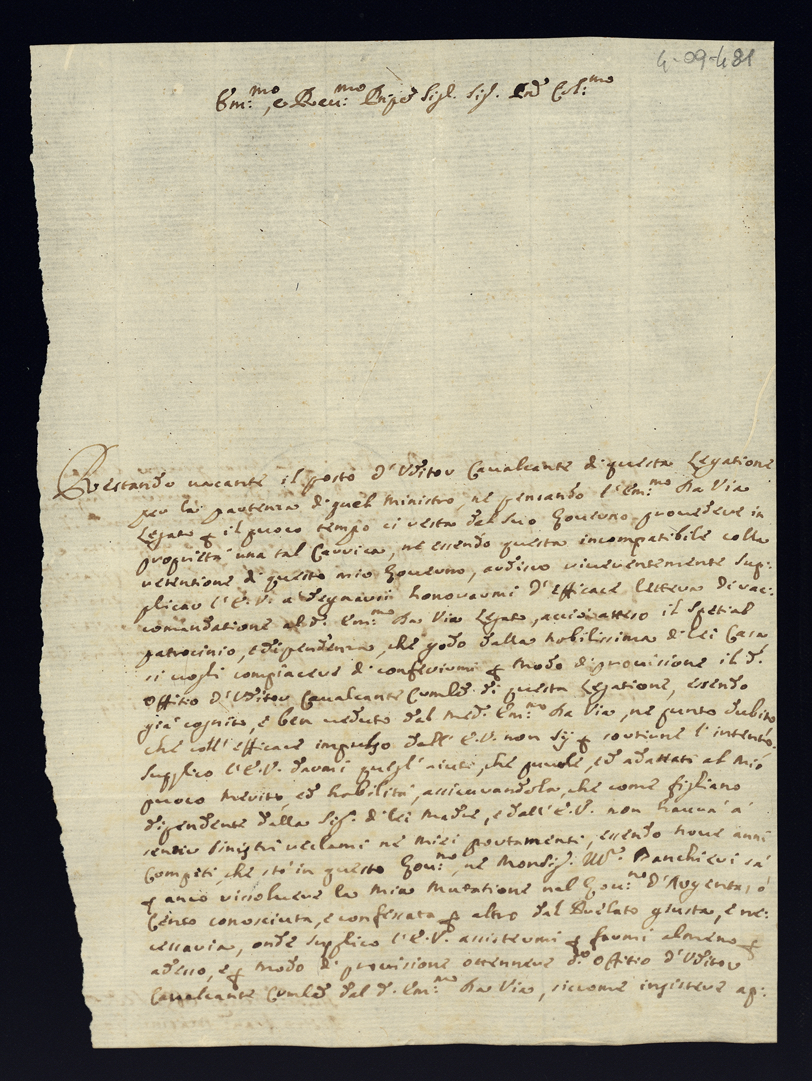 4-09-481
Em:mo, e Reu:mo Prñpe Sigr. Sigr. Prõe Col:mo
Restando uacante il posto d'Vditor Caualcante di questa Legatione
per la partenza di quel Ministro, ne pensando l'Em:mo Da Via
Legato p il puoco tempo ci resta del suo Gouerno prouedere in
proprietà una tal Carrica, ne essendo questa incompatibile colla
retentione di questo mio Gouerno, ardisco riuerentemente sup:
plicar l'E.V. a degnarsi honorarmi d'efficace lettera di rac:
comandatione al d. Em:mo Da Via Legato, acciò atteso il spetial
patrocinio, e dipendenza, che godo dalla nobilissima di lei Casa
si uogli compiacere di conferirmi p modo di prouisione il d.
Offitio d'Vditor Caualcante di questa Legatione, essendo
già cognito, e ben ueduto dal med. Em:mo Da Via, ne punto dubito
che coll'efficace impulso dell'E.V. non sij p sortirne l'intento,
supplico l'E.V. darmi quegl'aiuti, che puole, ed adattati al mio
puoco merito, ed habilità, assicurandola, che come figliano
dipendente dalla Sigr. di lei Madre, e dall'E.V. non haurà à
sentir sinistri reclami ne miei portamenti, essendo houe anni
compiti, che stò in questo Gou:no, ne Monsigr. Banchieri sà
p anco risoluere la mia mutatione nel Gou:no d'Argenta, ò
Cento conosciuta, e confessata p altro dal Prelato giusta, e ne:
cessaria, onde supplico l'E.V. assistermi p farmi almeno p
adesso, e p modo di prouisione ottenere do Offitio d'Vditor
Caualcante dal d. Em:mo Da Via, siccome insistere ap: